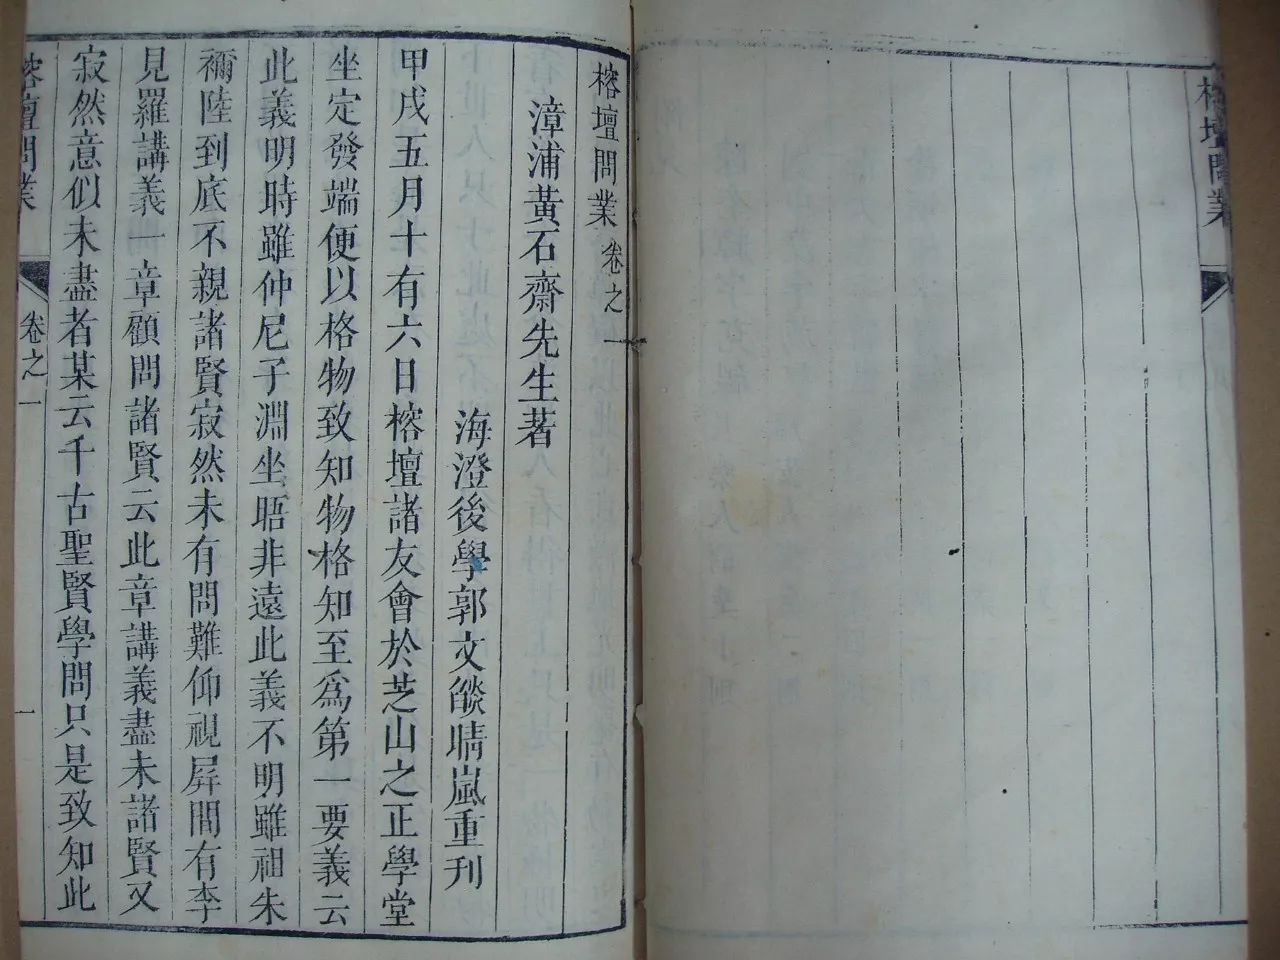 榕壇問業
榕壇問業 卷之一
漳浦黃石齋先生著
海澄後學郭文燄晴嵐重刊
甲戌五月十有六日榕壇諸友會於芝山之正學堂
坐定發端便以格物致知物格知至爲第一要義云
此義明時雖仲尼子淵坐晤非遠此義不明雖祖朱
禰陸到底不親諸賢寂然未有問難仰視屛間有李
見羅講義一章顧問諸賢云此章講義盡未諸賢又
寂然意似未盡者某云千古聖賢學問只是致知此
榕壇問業 卷之一 一